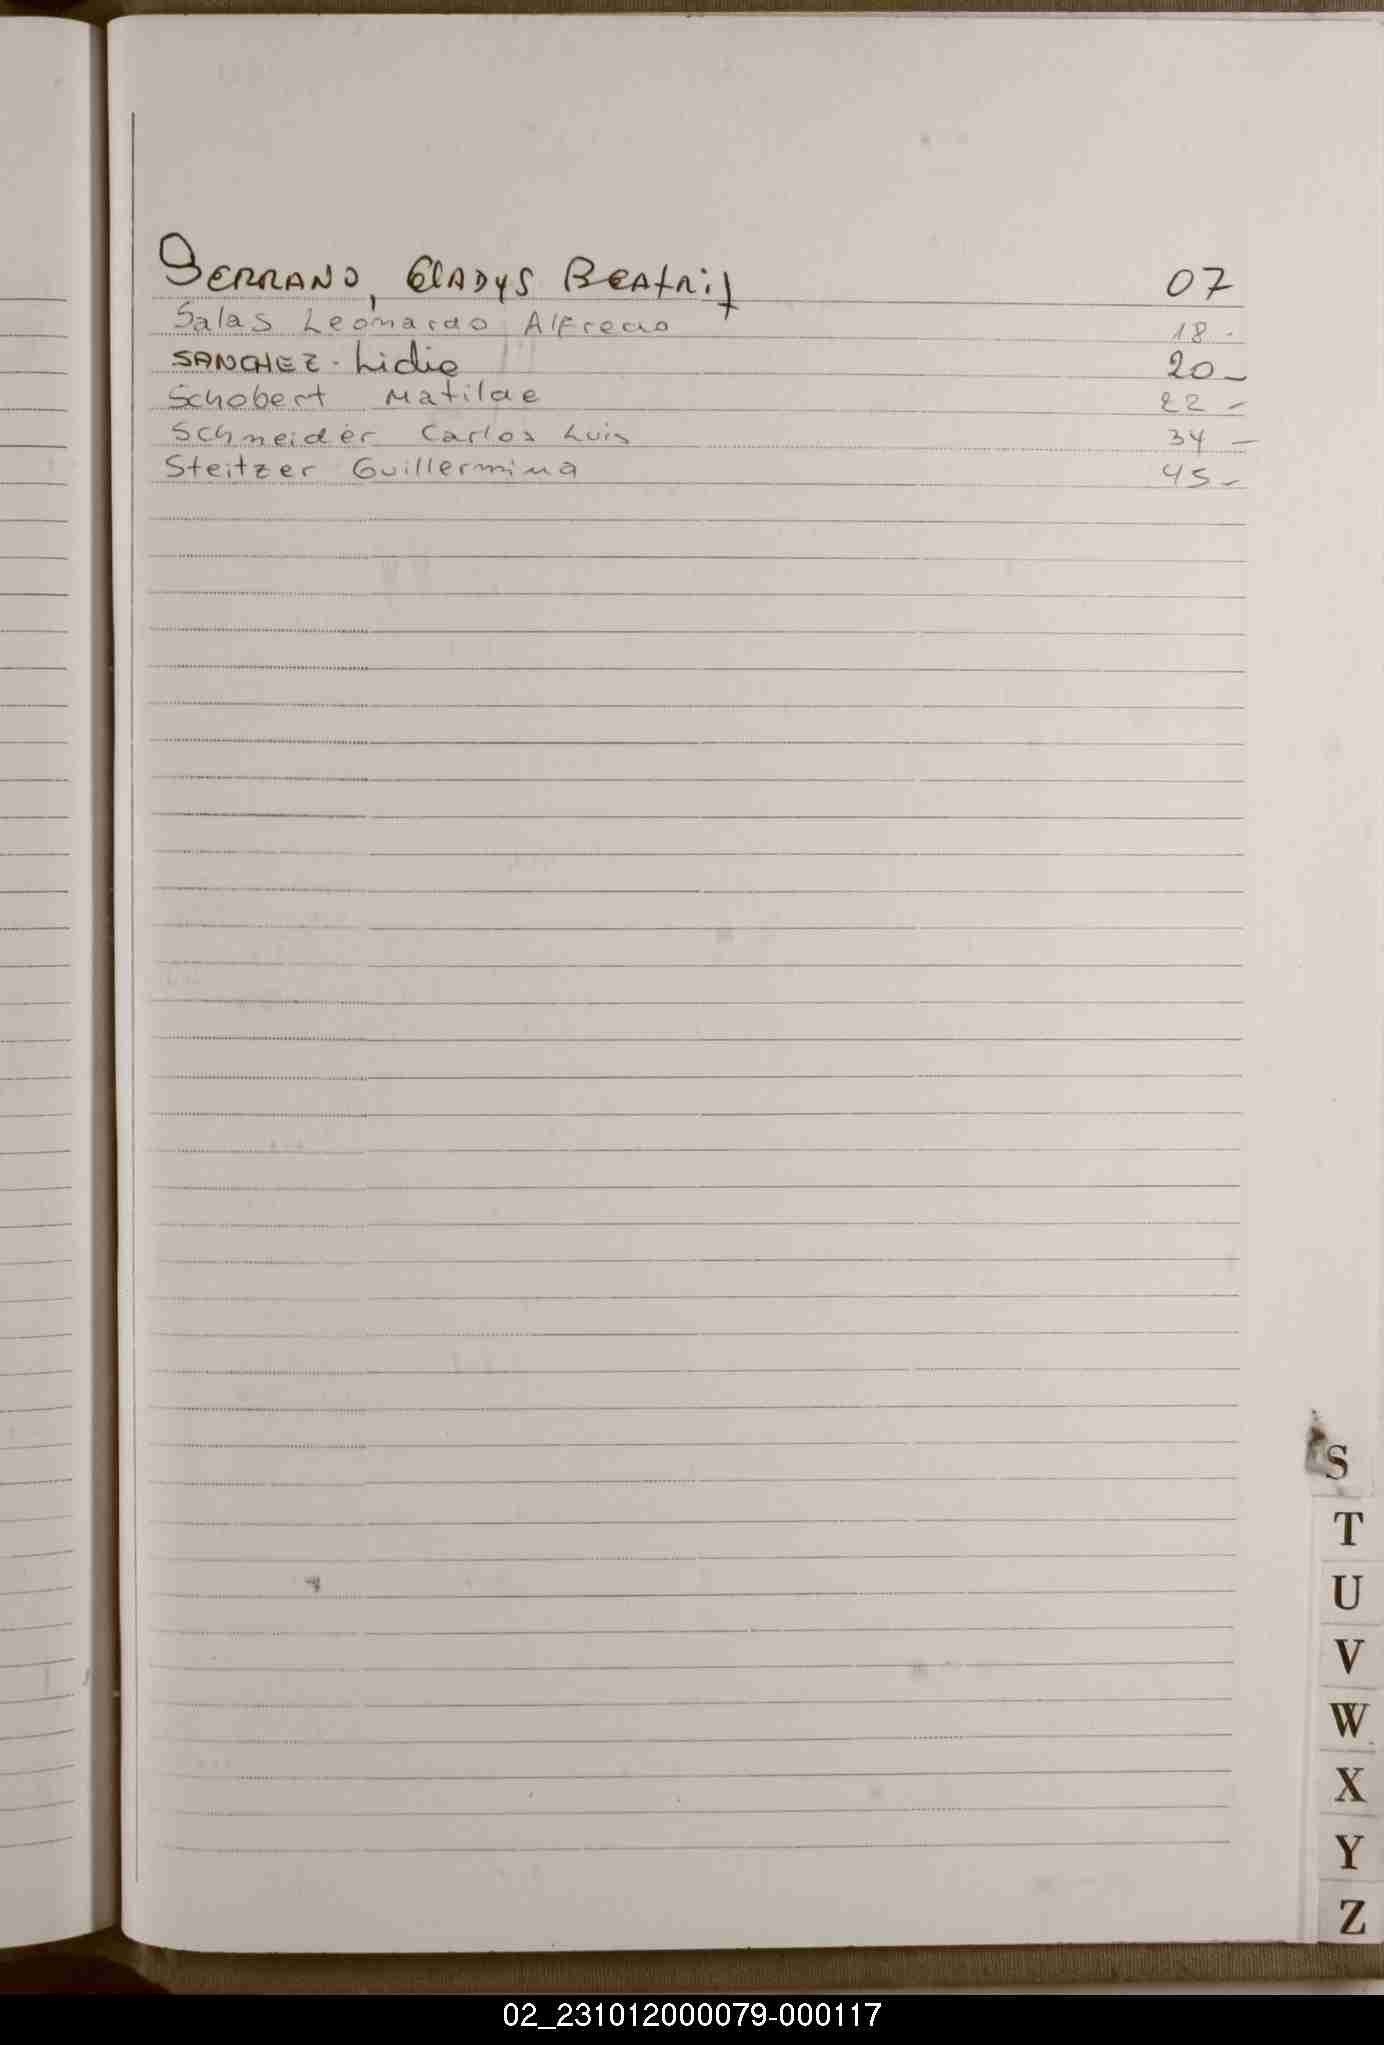 SERRANO, GLADYS BEAtRiz 07
Salas Leonardo Alfredo 18 -
SANCHEZ - Lidia 20 -
Schobert Matilde 22 -
Schneider Carlos Luis 34 -
Steitzer Guillermina 45 -
S
T
U
V
W
X
Y
Z
02_231012000079-000117